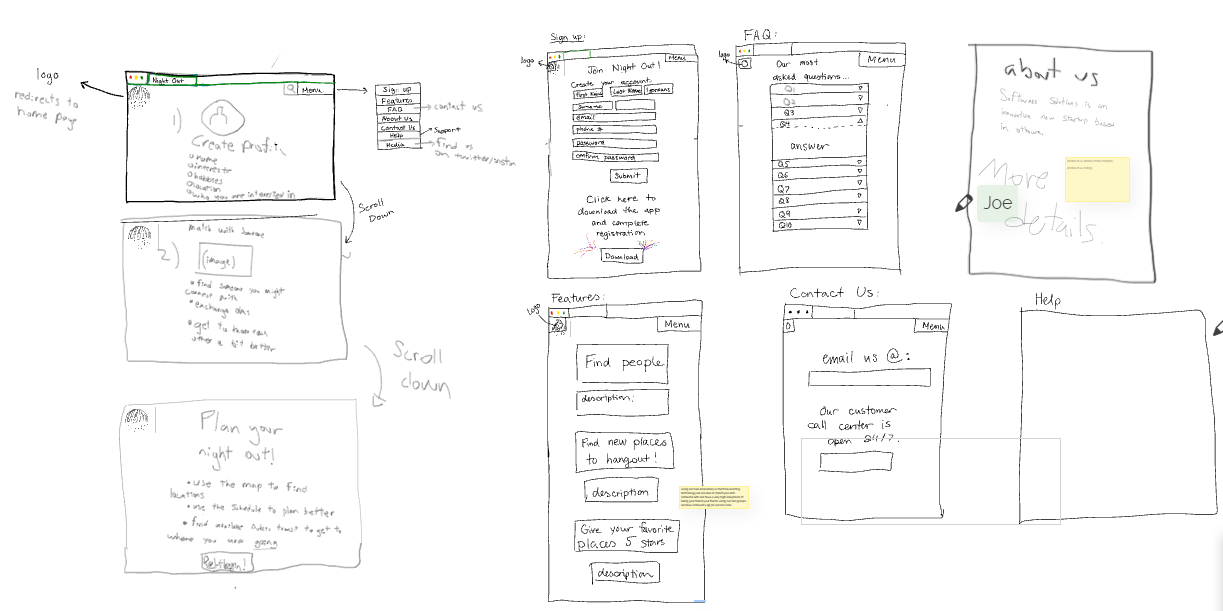 logo
redirects to
home page
Night Out
Menu
1)
Create profile
name
interests
hobbies
location
who you are interested in
Scroll
Down
Sign up
Features
FAQ
About Us
Contact Us
Help
Media
contact us
Support
find us
on twitter/insta
match with someone
2)
(image)
find someone you might
connect with
exchange
get to know
other a bit better
Scroll
down
Plan your
night out!
use the map to find
locations
use the schedule to plan better
find available transit to get to
where you are going
Sign up:
logo
Menu
Join Night Out!
Create your account.
First Name
Last Name
Surname
email
phone #
password
confirm password
Submit
Click here to
download the app
and complete
registration
Download
FAQ:
logo
Menu
Our most
asked questions...
Q1
Q2
Q3
Q4
answer
Q5
Q6
Q7
Q8
Q9
Q10
about us
Software Solutions is an
innovative new startup based
in
More
details.
Joe
Features:
logo
Menu
Find people
description:
Find new places
to hangout!
description
Give your favorite
places 5 stars
description
Contact Us:
Menu
email us @:
Our customer
call center is
open 24/7.
Help